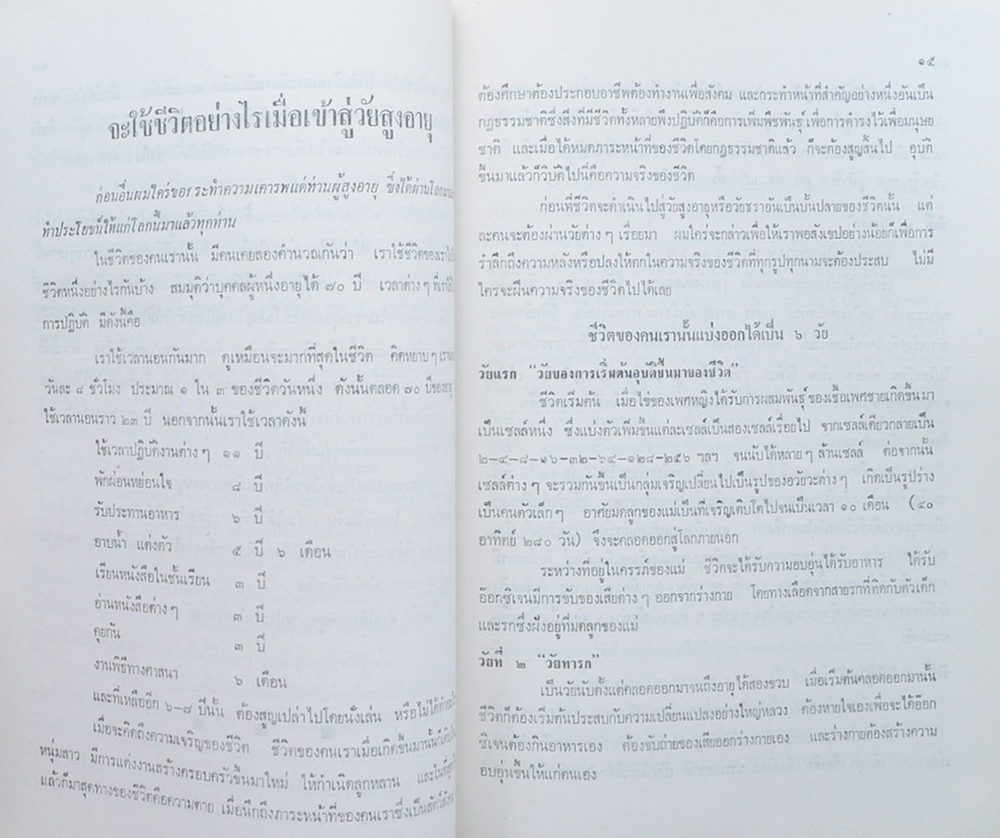 จะใช้ชีวิตอย่างไรเมื่อเข้าสู่วัยสูงอายุ
ก่อนอื่นผมใคร่ขอกระทำความเคารพแด่ท่านผู้สูงอายุ ซึ่งได้ผ่านโลก
ทำประโยชน์ให้แก่โลกนี้มาแล้วทุกท่าน
ในชีวิตของคนเรานั้น มีคนเคยลองคำนวณกันว่า เราใช้ชีวิตของเรา
ชีวิตหนึ่งอย่างไรกันบ้าง สมมุติว่าบุคคลผู้หนึ่งอายุได้ ๗๐ ปี เวลาต่าง ๆ ที่เรา
การปฏิบัติ มีดังนี้คือ
เราใช้เวลานอนกันมาก ดูเหมือนจะมากที่สุดในชีวิต คิดหยาบ ๆ เรา
วันละ ๘ ชั่วโมง ประมาณ ๑ ใน ๓ ของชีวิตวันหนึ่ง ดังนั้นตลอด ๗๐ ปีของอายุ
ใช้เวลานอนราว ๒๓ ปี นอกจากนั้นเราใช้เวลาดังนี้
ใช้เวลาปฏิบัติงานต่าง ๆ ๑๑ ปี
พักผ่อนหย่อนใจ ๘ ปี
รับประทานอาหาร ๖ ปี
อาบน้ำ แต่งตัว ๕ ปี ๖ เดือน
เรียนหนังสือในชั้นเรียน ๓ ปี
อ่านหนังสือต่าง ๆ ๓ ปี
คุยกัน ๓ ปี
งานพิธีทางศาสนา ๖ เดือน
และที่เหลืออีก ๖-๗ ปีนั้น ต้องสูญเปล่าไปโดยนั่งเล่น หรือไม่ได้
เมื่อจะคิดถึงความเจริญของชีวิต ชีวิตของคนเราเมื่อเกิดขึ้นมานั้น
หนุ่มสาว มีการแต่งงานสร้างครอบครัวขึ้นมาใหม่ ให้กำเนิดลูกหลาน
แล้วก็มาสุดทางของชีวิตคือความตาย เมื่อนึกถึงภาระหน้าที่ของคนเราซึ่งเป็นสัตว์
๑๕
ต้องศึกษาต้องประกอบอาชีพต้องทำงานเพื่อสังคม และกระทำหน้าที่สำคัญอย่างหนึ่งอันเป็น
กฎธรรมชาติซึ่งสิ่งที่มีชีวิตทั้งหลายพึงปฏิบัติก็คือการเพิ่มพืชพันธุ์ เพื่อการดำรงไว้เพื่อมนุษย
ชาติ และเมื่อได้หมดภาระหน้าที่ของชีวิตโดยกฎธรรมชาติแล้ว ก็จะต้องสูญสิ้นไป อุบัติ
ขึ้นมาแล้วก็วิบัติไปนี่คือความจริงของชีวิต
ก่อนที่ชีวิตจะดำเนินไปสู่วัยสูงอายุหรือวัยชราอันเป็นบั้นปลายของชีวิตนั้น แต่
ละคนจะต้องผ่านวัยต่าง ๆ เรื่อยมา ผมใคร่จะกล่าวเพื่อให้เราพอสังเขปอย่างน้อยก็เพื่อการ
รำลึกถึงความหลังหรือปลงให้ตกในความจริงของชีวิตที่ทุกรูปทุกนามจะต้องประสบ ไม่มี
ใครจะฝืนความจริงของชีวิตไปได้เลย
ชีวิตของคนเรานั้นแบ่งออกได้เป็น ๖ วัย
วัยแรก "วัยของการเริ่มต้นอุบัติขึ้นมาของชีวิต"
ชีวิตเริ่มต้น เมื่อไข่ของเพศหญิงได้รับการผสมพันธุ์ของเชื้อเพศชายเกิดขึ้นมา
เป็นเซลล์หนึ่ง ซึ่งแบ่งตัวเพิ่มขึ้นแต่ละเซลล์เป็นสองเซลล์เรื่อยไป จากเซลล์เดียวกลายเป็น
๒-๔-๘-๑๖-๓๒-๖๔-๑๒๘-๒๕๖ ฯลฯ จนนับได้หลาย ๆ ล้านเซลล์ ต่อจากนั้น
เซลล์ต่าง ๆ จะรวมกันขึ้นเป็นกลุ่มเจริญเปลี่ยนไปเป็นรูปของอวัยวะต่าง ๆ เกิดเป็นรูปร่าง
เป็นคนตัวเล็ก ๆ อาศัยมดลูกของแม่เป็นที่เจริญเติบโตไปจนเป็นเวลา ๑๐ เดือน (๔๐
อาทิตย์ ๒๘๐ วัน) จึงจะคลอดออกสู่โลกภายนอก
ระหว่างที่อยู่ในครรภ์ของแม่ ชีวิตจะได้รับความอบอุ่นได้รับอาหาร ได้รับ
อ๊อกซิเจนมีการขับของเสียต่าง ๆ ออกจากร่างกาย โดยทางเลือดจากสายรกที่ติดกับตัวเด็ก
และรกซึ่งฝังอยู่ที่มดลูกของแม่
วัยที่ ๒ "วัยทารก"
เป็นวัยนับตั้งแต่คลอดออกมาจนถึงอายุได้สองขวบ เมื่อเริ่มต้นคลอดออกมานั้น
ชีวิตก็ต้องเริ่มต้นประสบกับความเปลี่ยนแปลงอย่างใหญ่หลวง ต้องหายใจเองเพื่อจะได้อ๊อก
ซิเจนต้องกินอาหารเอง ต้องขับถ่ายของเสียออกร่างกายเอง และร่างกายต้องสร้างความ
อบอุ่นขึ้นให้แก่ตนเอง